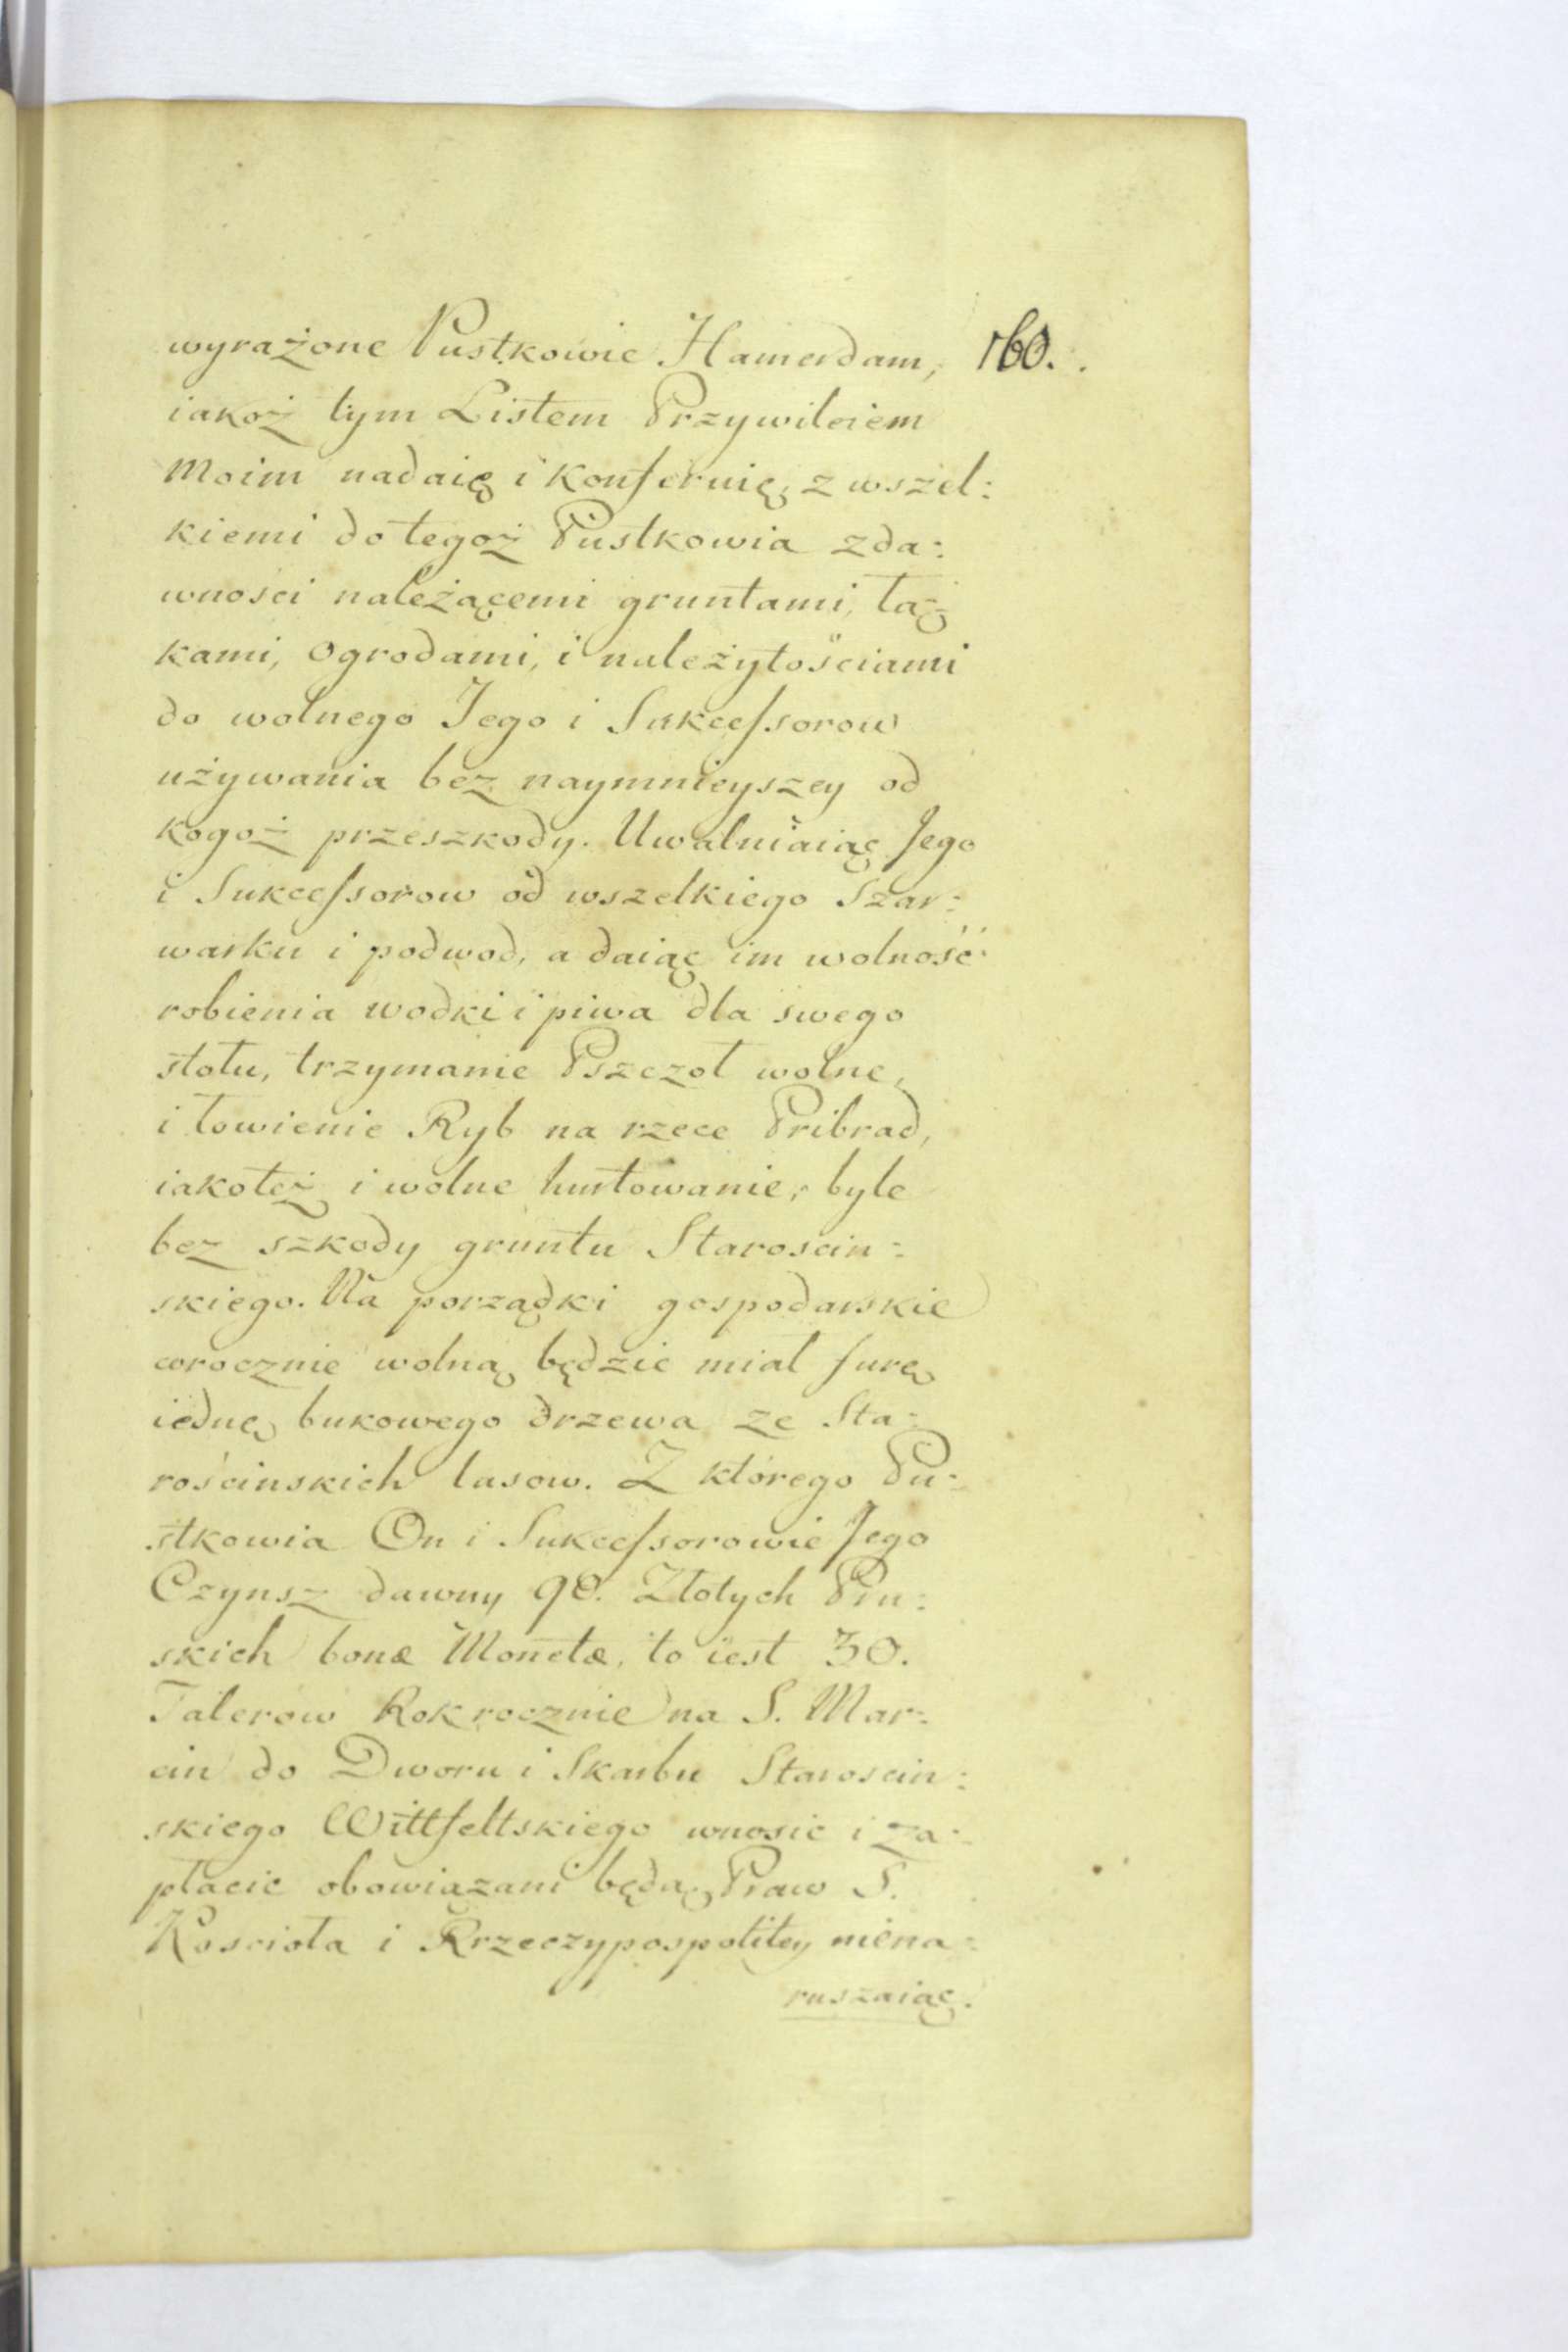 wyrażone Pustkowie Hamerdam, 160.
iakoż tym Listem Przywileiem
Moim nadaię i Konferuię, z wszel:
kiemi do tegoż Pustkowia zda:
wności należącemi gruntami, łą:
kami, Ogrodami, i należytościami
do wolnego Jego i Sukcessorow
używania bez naymnieyszey od
kogoż przeszkody. Uwalniaiąc Jego
i Sukcessorow od wszelkiego Szar:
warku i podwod, a daiąc im wolność
robienia wodki i piwa dla swego
stołu, trzymanie Pszczoł wolne,
i łowienie Ryb na rzece Pribrad,
iakoteż i wolne huntowanie, byle
bez szkody gruntu Staroscin:
skiego. Na porządki gospodarskie
corocznie wolną będzie miał furę
iednę bukowego drzewa ze Sta:
rościnskich lasow. Z którego Pu:
stkowia On i Sukcessorowie Jego
Czynsz dawny 90. Złotych Pru:
skich bonæ Monetæ, to iest 30.
Talerow Rok rocznie na S. Mar:
cin do Dworu i Skarbu Staroscin:
skiego Wittfeltskiego wnosic i za:
płacic obowiązani będą, Praw S.
Kosciola i Rzeczypospolitey niena:
ruszaiąc.